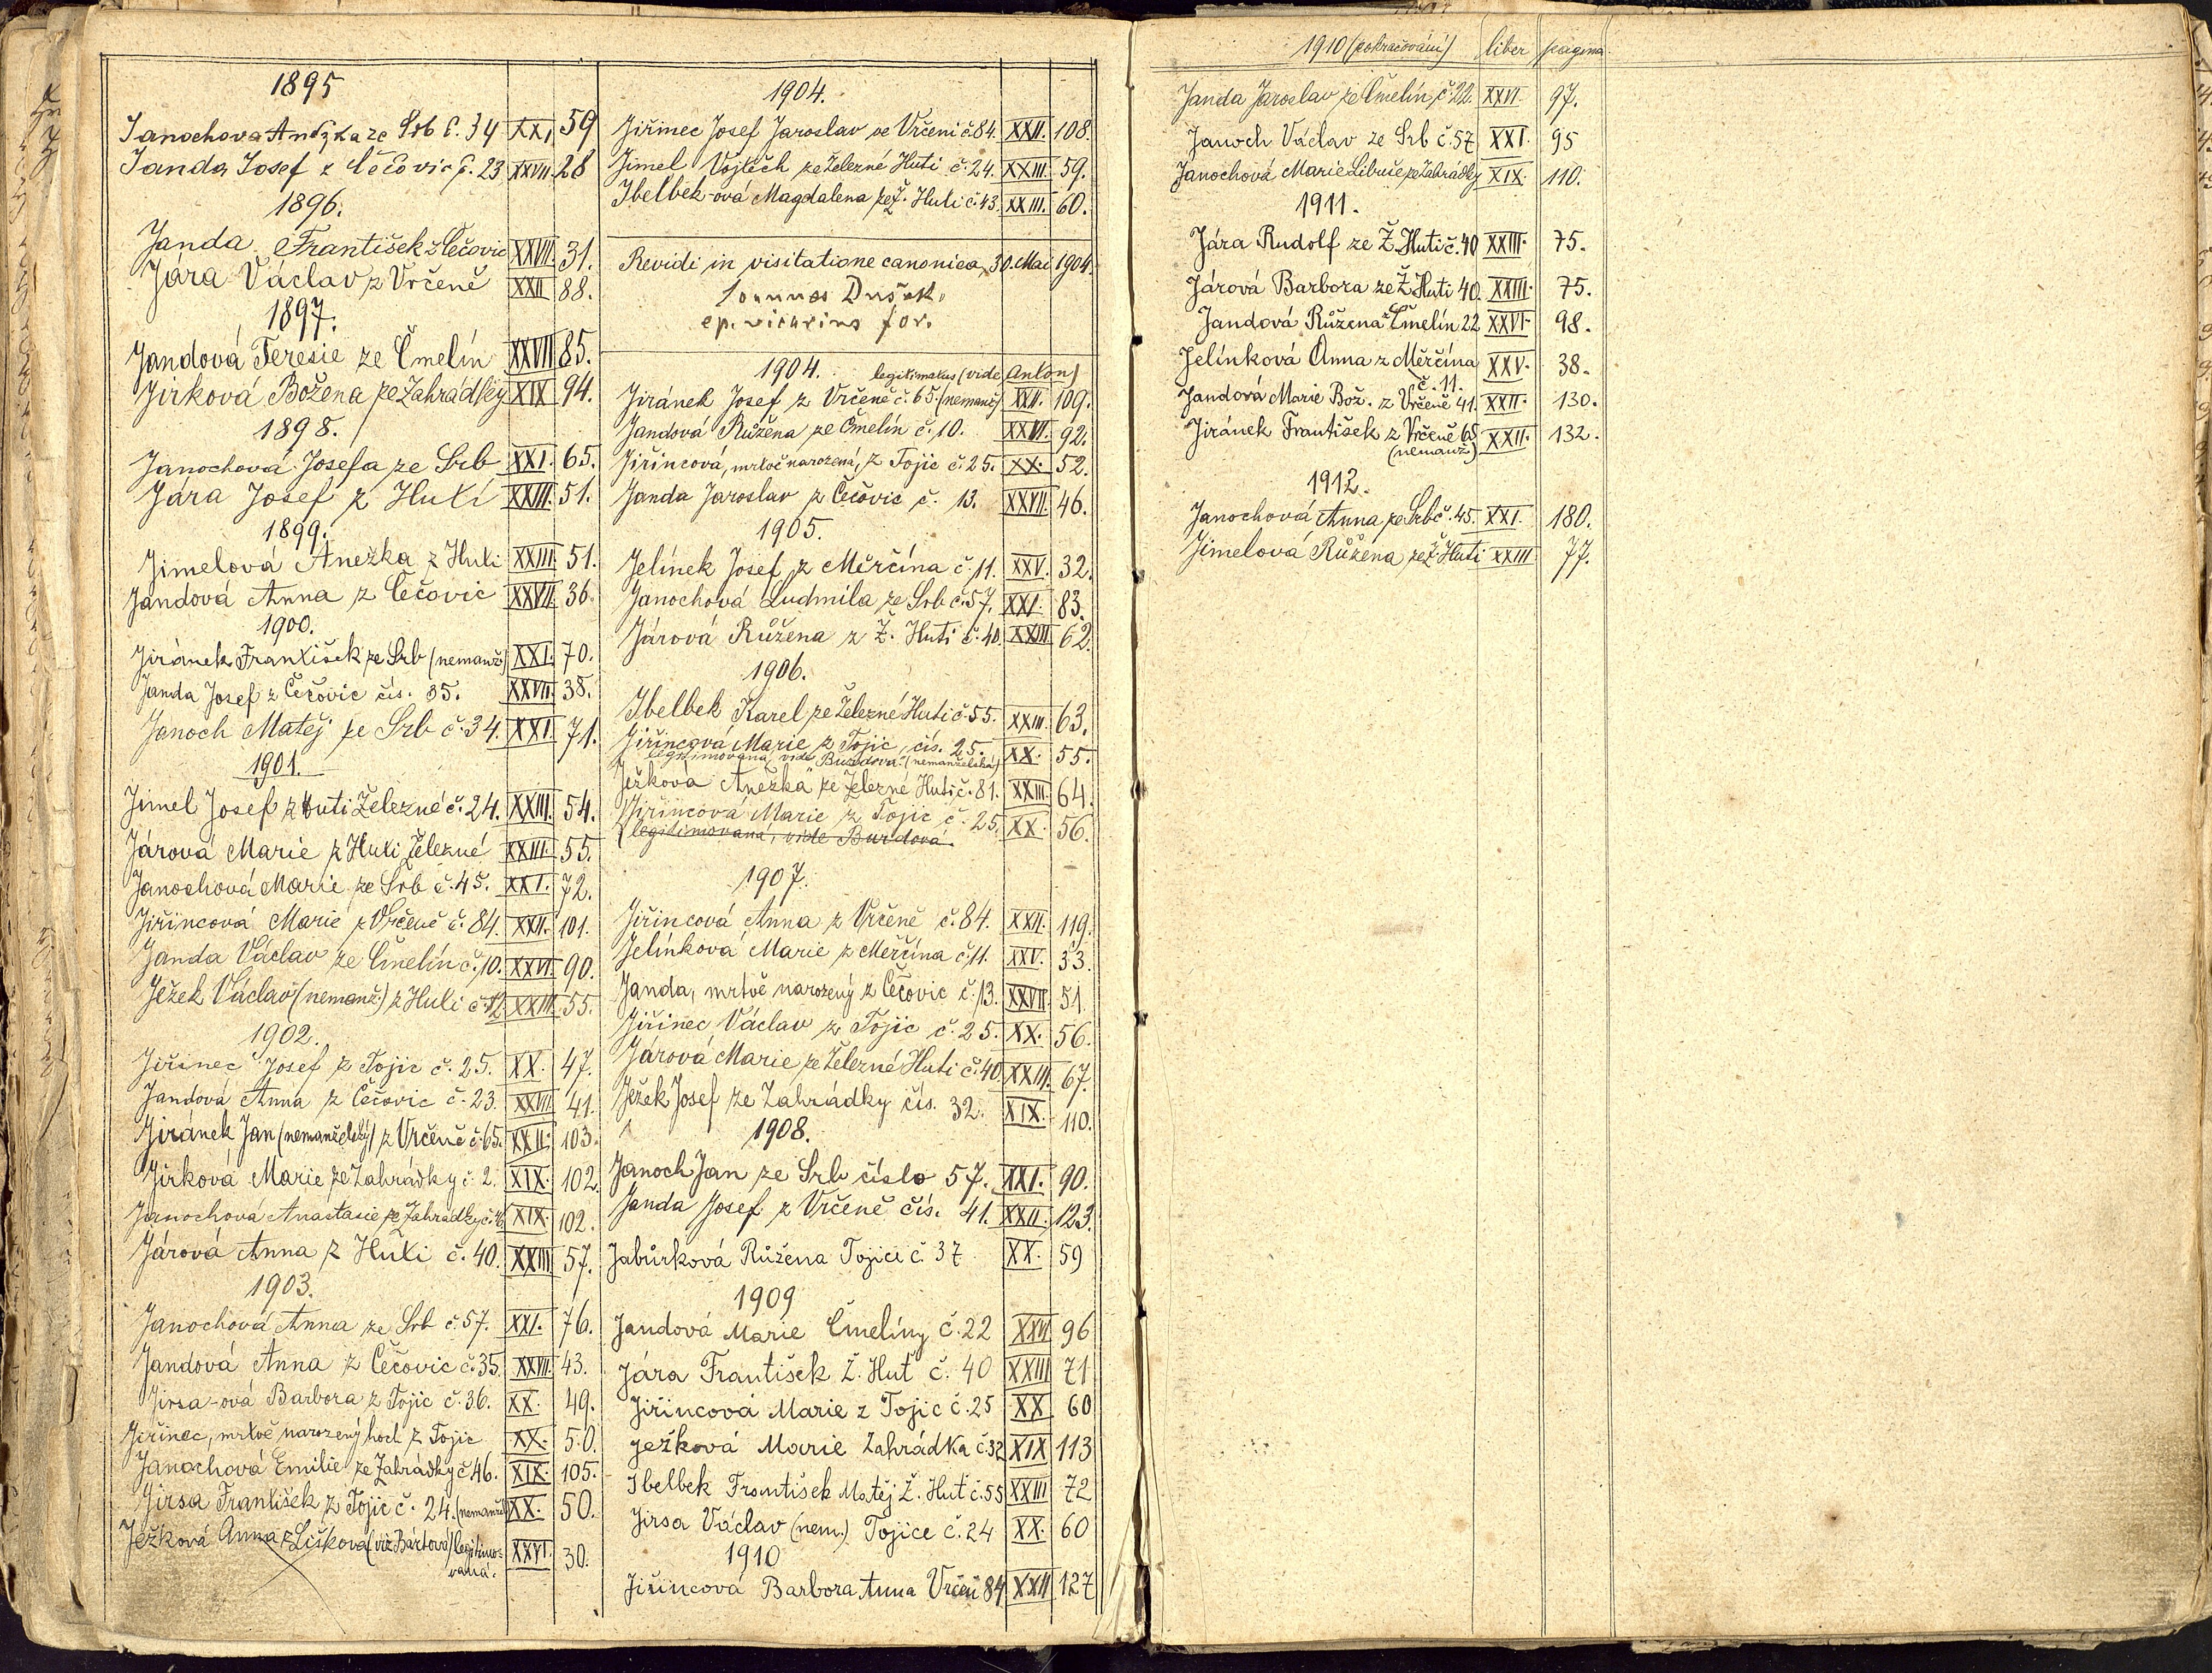 1895
Janochova Anežka ze Srb č. 34 XXI 59
Janda Josef z Čečovic č. 23 XXVII. 28
1896.
Janda František z Čečovic XXVII. 31.
Jára Václav z Vrčeně XXII 88.
1897.
Jandová Teresie ze Čmelín XXVII 85.
Jírková Božena ze Zahrádky XIX 94.
1898.
Janochová Josefa ze Srb XXI. 65.
Jára Josef z Huti XXIII. 51.
1899.
Jimelová Anežka z Huti XXIII. 51.
Jandová Anna z Čečovic XXVII. 36.
1900.
Jiránek František ze Srb (nemanž.) XXI. 70.
Janda Josef z Čečovic čís. 35. XXVII. 38.
Janoch Matěj ze Srb č. 34. XXI. 71.
1901.
Jimel Josef z Huti Železné č. 24. XXIII. 54.
Járová Marie z Huti Železné XXIII. 55.
Janochová Marie ze Srb č. 45. XXI. 72.
Jiřincová Marie z Vrčeně č. 84. XXII. 101.
Janda Václav ze Čmelín č. 10. XXVI. 90.
Ježek Václav (nemanž.) z Huti č. 12 XXIII. 55.
1902.
Jiřinec Josef z Tojic č. 25. XX. 47.
Jandová Anna z Čečovic č. 23. XXVII 41.
Jiránek Jan (nemanželský) z Vrčeně č. 65. XXII. 103.
Jírková Marie ze Zahrádky č. 2. XIX. 102.
Janochová Anastasie ze Zahrádky č. XIX. 102.
Járová Anna z Huti č. 40. XXIII 57.
1903.
Janochová Anna ze Srb č. 57. XXI. 76.
Jandová Anna z Čečovic č. 35. XXVII. 43.
Jirsa-ová Barbora z Tojic č. 36. XX. 49.
Jiřinec, mrtvě narozený hoch z Tojic XX. 50.
Janochová Emilie ze Zahrádky č. 46. XIX. 105.
Jirsa František z Tojic č. 24. (nemanžel.) XX. 50.
Ježková Anna z Lišková (viz Bártová) legitimo-
vaná. XXVI. 30.
1904.
Jiřinec Josef Jaroslav ve Vrčeni č. 84. XXII. 108.
Jimel Vojtěch ze Železné Huti č. 24. XXIII. 59.
Jbelbek-ová Magdalena ze Ž. Huti č. 43. XXIII. 60.
Revidi in visitatione canonica, 30. Mai 1904
Joannes Dušek,
ep. vicarius for.
1904. legitimatus (vide Anton)
Jiránek Josef z Vrčeně č. 65. (nemanž.) XXII. 109.
Jandová Růžena ze Čmelín č. 10. XXVI. 92.
Jiřincová, mrtvě narozená, z Tojic č. 25. XX. 52.
Janda Jaroslav z Čečovic č. 13. XXVII. 46.
1905.
Jelínek Josef z Měrčína č. 11. XXV. 32.
Janochová Ludmila ze Srb č. 57. XXI. 83.
Járová Růžena z Ž. Huti č. 40. XXIII. 62.
1906.
Jbelbek Karel ze Železné Huti č. 55. XXIII. 63.
Jiřincová Marie z Tojic, čís. 25. XX. 55.
legitimovaná vide Burdová. (nemanželská)
Ježková Anežka ze Železné Huti č. 81. XXIII. 64.
Jiřincová Marie z Tojic č. 25. XX. 56.
(legitimovaná, vide Burdová.
1907.
Jiřincová Anna z Vrčeně č. 84. XXII. 119.
Jelínková Marie z Měrčína č. 11. XXV. 33.
Janda, mrtvě narozený z Čečovic č. 13. XXVII. 51.
Jiřinec Václav z Tojic č. 25. XX. 56.
Járová Marie ze Železné Huti č. 40. XXIII. 67.
Ježek Josef ze Zahrádky čís. 32. XIX. 110.
1908.
Janoch Jan ze Srb číslo 57. XXI. 90.
Janda Josef z Vrčeně čís. 41. XXII. 123.
Jabůrková Růžena Tojice č. 37 XX. 59
1909
Jandová Marie Čmelíny č. 22 XXVI 96
Jára František Ž. Huť č. 40 XXIII 71
Jiřincová Marie z Tojic č. 25 XX 60
Ježková Marie Zahrádka č. 32 XIX 113
Jbelbek František Matěj Ž. Huť č. 55 XXIII 72
Jirsa Václav (nem.) Tojice č. 24 XX. 60
1910
Jiřincová Barbora Anna Vrčeň 84 XXII 127
1910 (pokračování) liber pagina
Janda Jaroslav ze Čmelín č. 22. XXVI. 97.
Janoch Václav ze Srb č. 57 XXI. 95
Janochová Marie Libuše ze Zahrádky XIX. 110.
1911.
Jára Rudolf ze Ž. Huti č. 40 XXIII. 75.
Járová Barbora ze Ž. Huti 40. XXIII. 75.
Jandová Růžena z Čmelín 22 XXVI. 98.
Jelínková Anna z Měrčína XXV. 38.
č. 11.
Jandová Marie Bož. z Vrčeně 41. XXII. 130.
Jiránek František z Vrčeně 65 XXII. 132.
(nemanž.)
1912.
Janochová Anna ze Srb č. 45. XXI. 180.
Jimelová Růžena ze Ž. Huti XXIII 77.